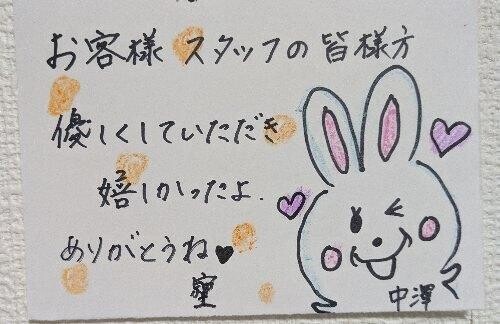 お客様 スタッフの皆様方
優しくしていただき
嬉しかったよ.
ありがとうね♥
中澤